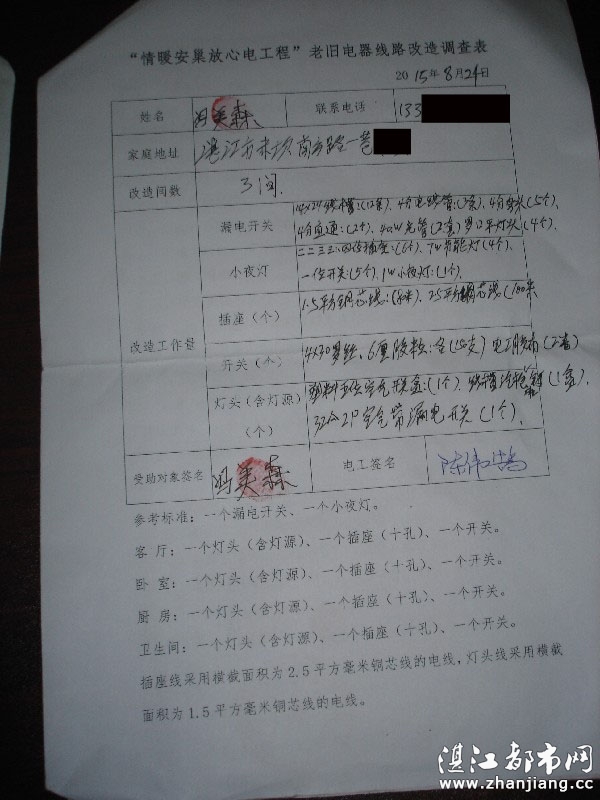 “情暖安巢放心电工程”老旧电器线路改造调查表
2015年8月24日
姓名 冯美森 联系电话 133
家庭地址 湛江市赤坎南方路一巷
改造间数 3间
改造工作量
漏电开关 14×24线槽:(12套)、4分电线管:(3套)、4分弯头(5个)
4分直通:(2个)、40W光管(2套)罗口平灯头(4个)
小夜灯 二二三三四位插座:(6个)、7W节能灯(4个)、
一位开关:(5个)、1W小夜灯:(1个)
插座(个) 1.5平方铜芯线:(80米)、2.5平方铜芯线(100米
开关(个) 4×30罗丝、6厘胶粒:各(150支)电工胶布(2卷)
灯头(含灯源)(个) 塑料五位空气开关盒:(1个)、
32A 2P空气带漏电开关(1个)、
受助对象签名 冯美森 电工签名 陈伟
参考标准:一个漏电开关、一个小夜灯。
客 厅:一个灯头(含灯源)、一个插座(十孔)、一个开关。
卧 室:一个灯头(含灯源)、一个插座(十孔)、一个开关。
厨 房:一个灯头(含灯源)、一个插座(十孔)、一个开关。
卫生间:一个灯头(含灯源)、一个插座(十孔)、一个开关。
插座线采用横截面积为2.5平方毫米铜芯线的电线,灯头线采用横截
面积为1.5平方毫米铜芯线的电线。
湛江都市网
www.zhanjiang.cc